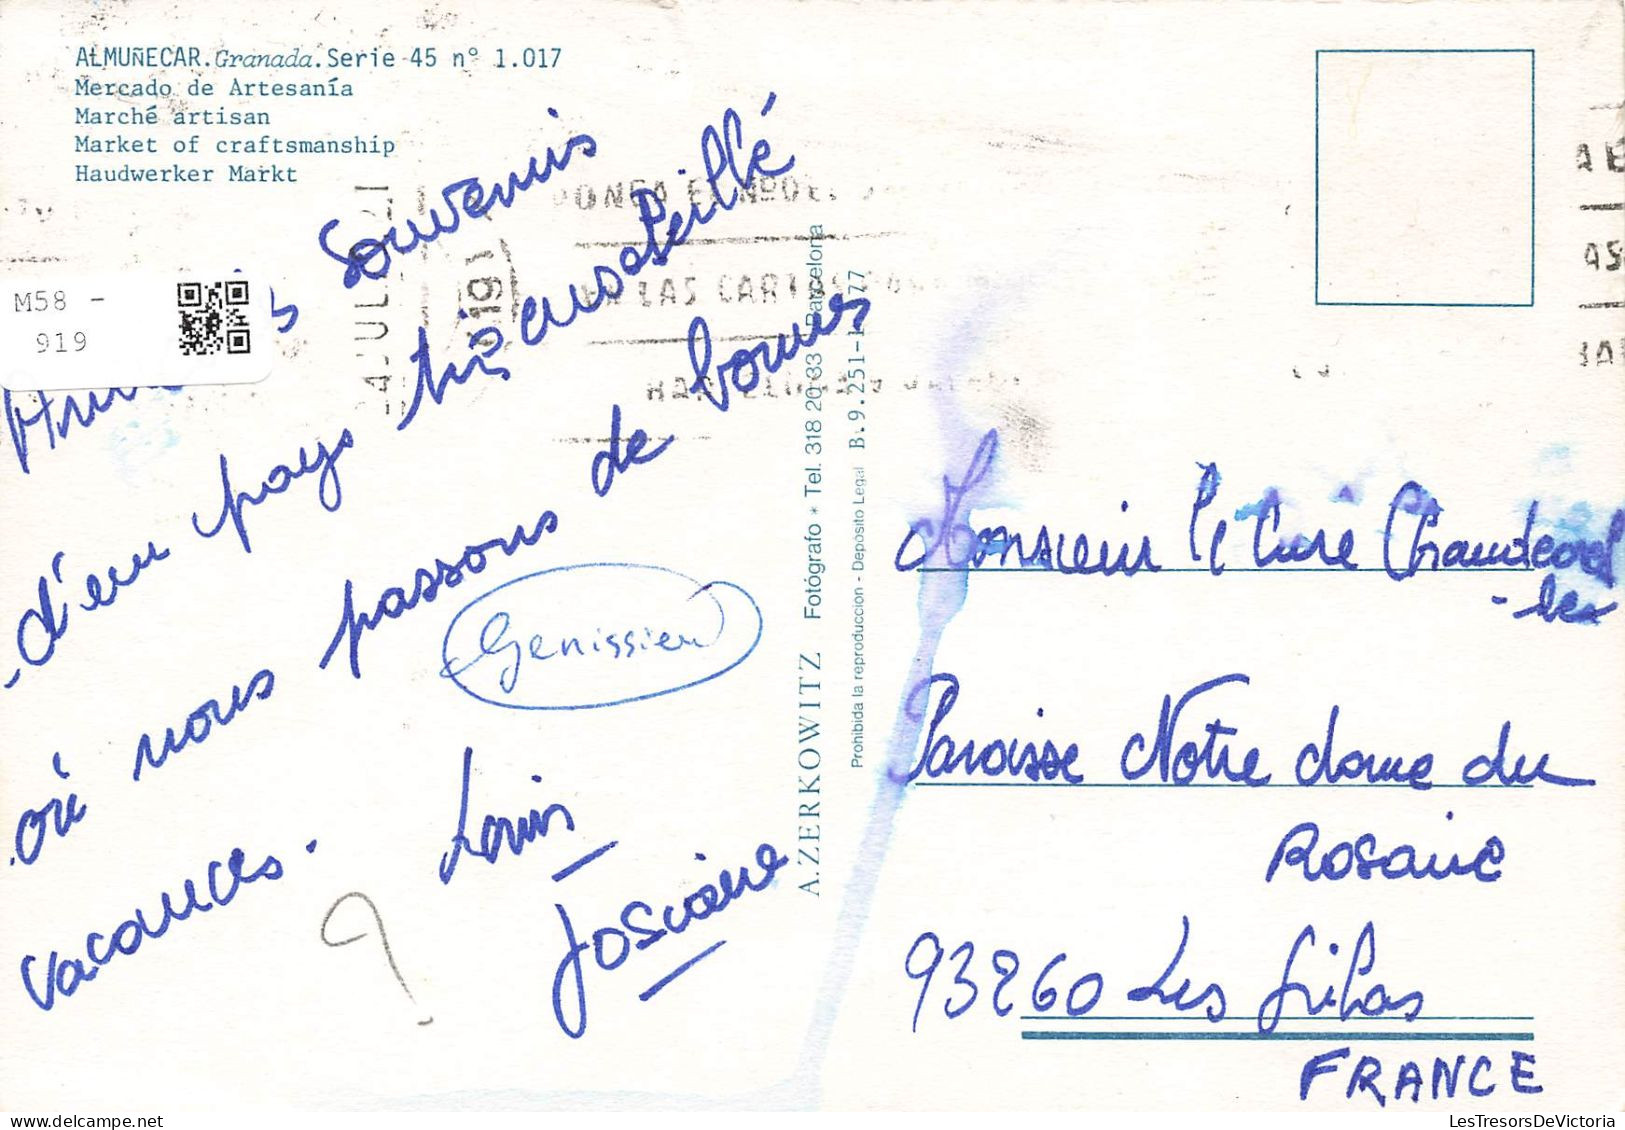 ALMUÑECAR. Granada. Serie 45 nº 1.017
Mercado de Artesanía
Marché artisan
Market of craftsmanship
Haudwerker Markt
M58 -
919
souvenirs
d'eu pays très ensoleillé
où nous passons de bonnes
vacances.
Genissieu
Louis
Josciane
?
PONGA EL Nº DE
EN LAS CARTAS
4 JUL
19
A. ZERKOWITZ Fotógrafo * Tel. 318 20 33 Barcelona
Prohibida la reproduccion - Depósito Legal B. 9.251-1977
Monsieur le Curé
Paroisse Notre dame du
Rosaire
93260 Les Lilas
FRANCE
LesTresorsDeVictoria.com